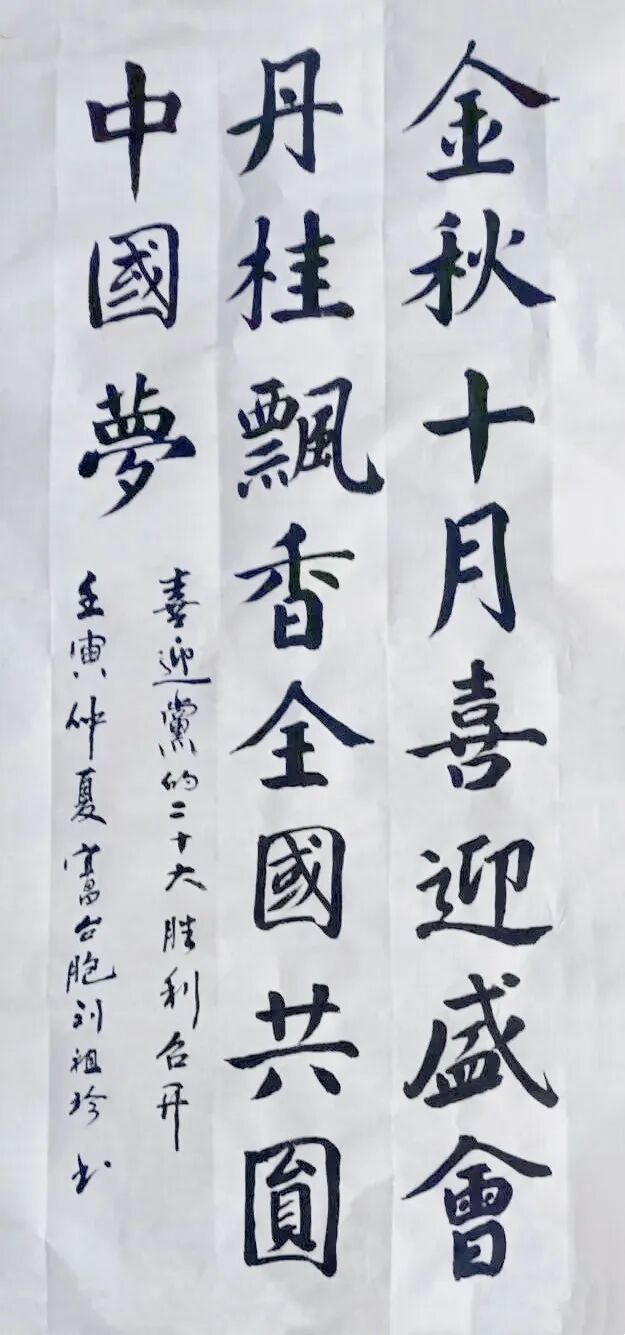 金秋十月喜迎盛會
丹桂飄香全國共圓
中國夢
喜迎黨的二十大勝利召开
壬寅仲夏富台胞刘祖珍书